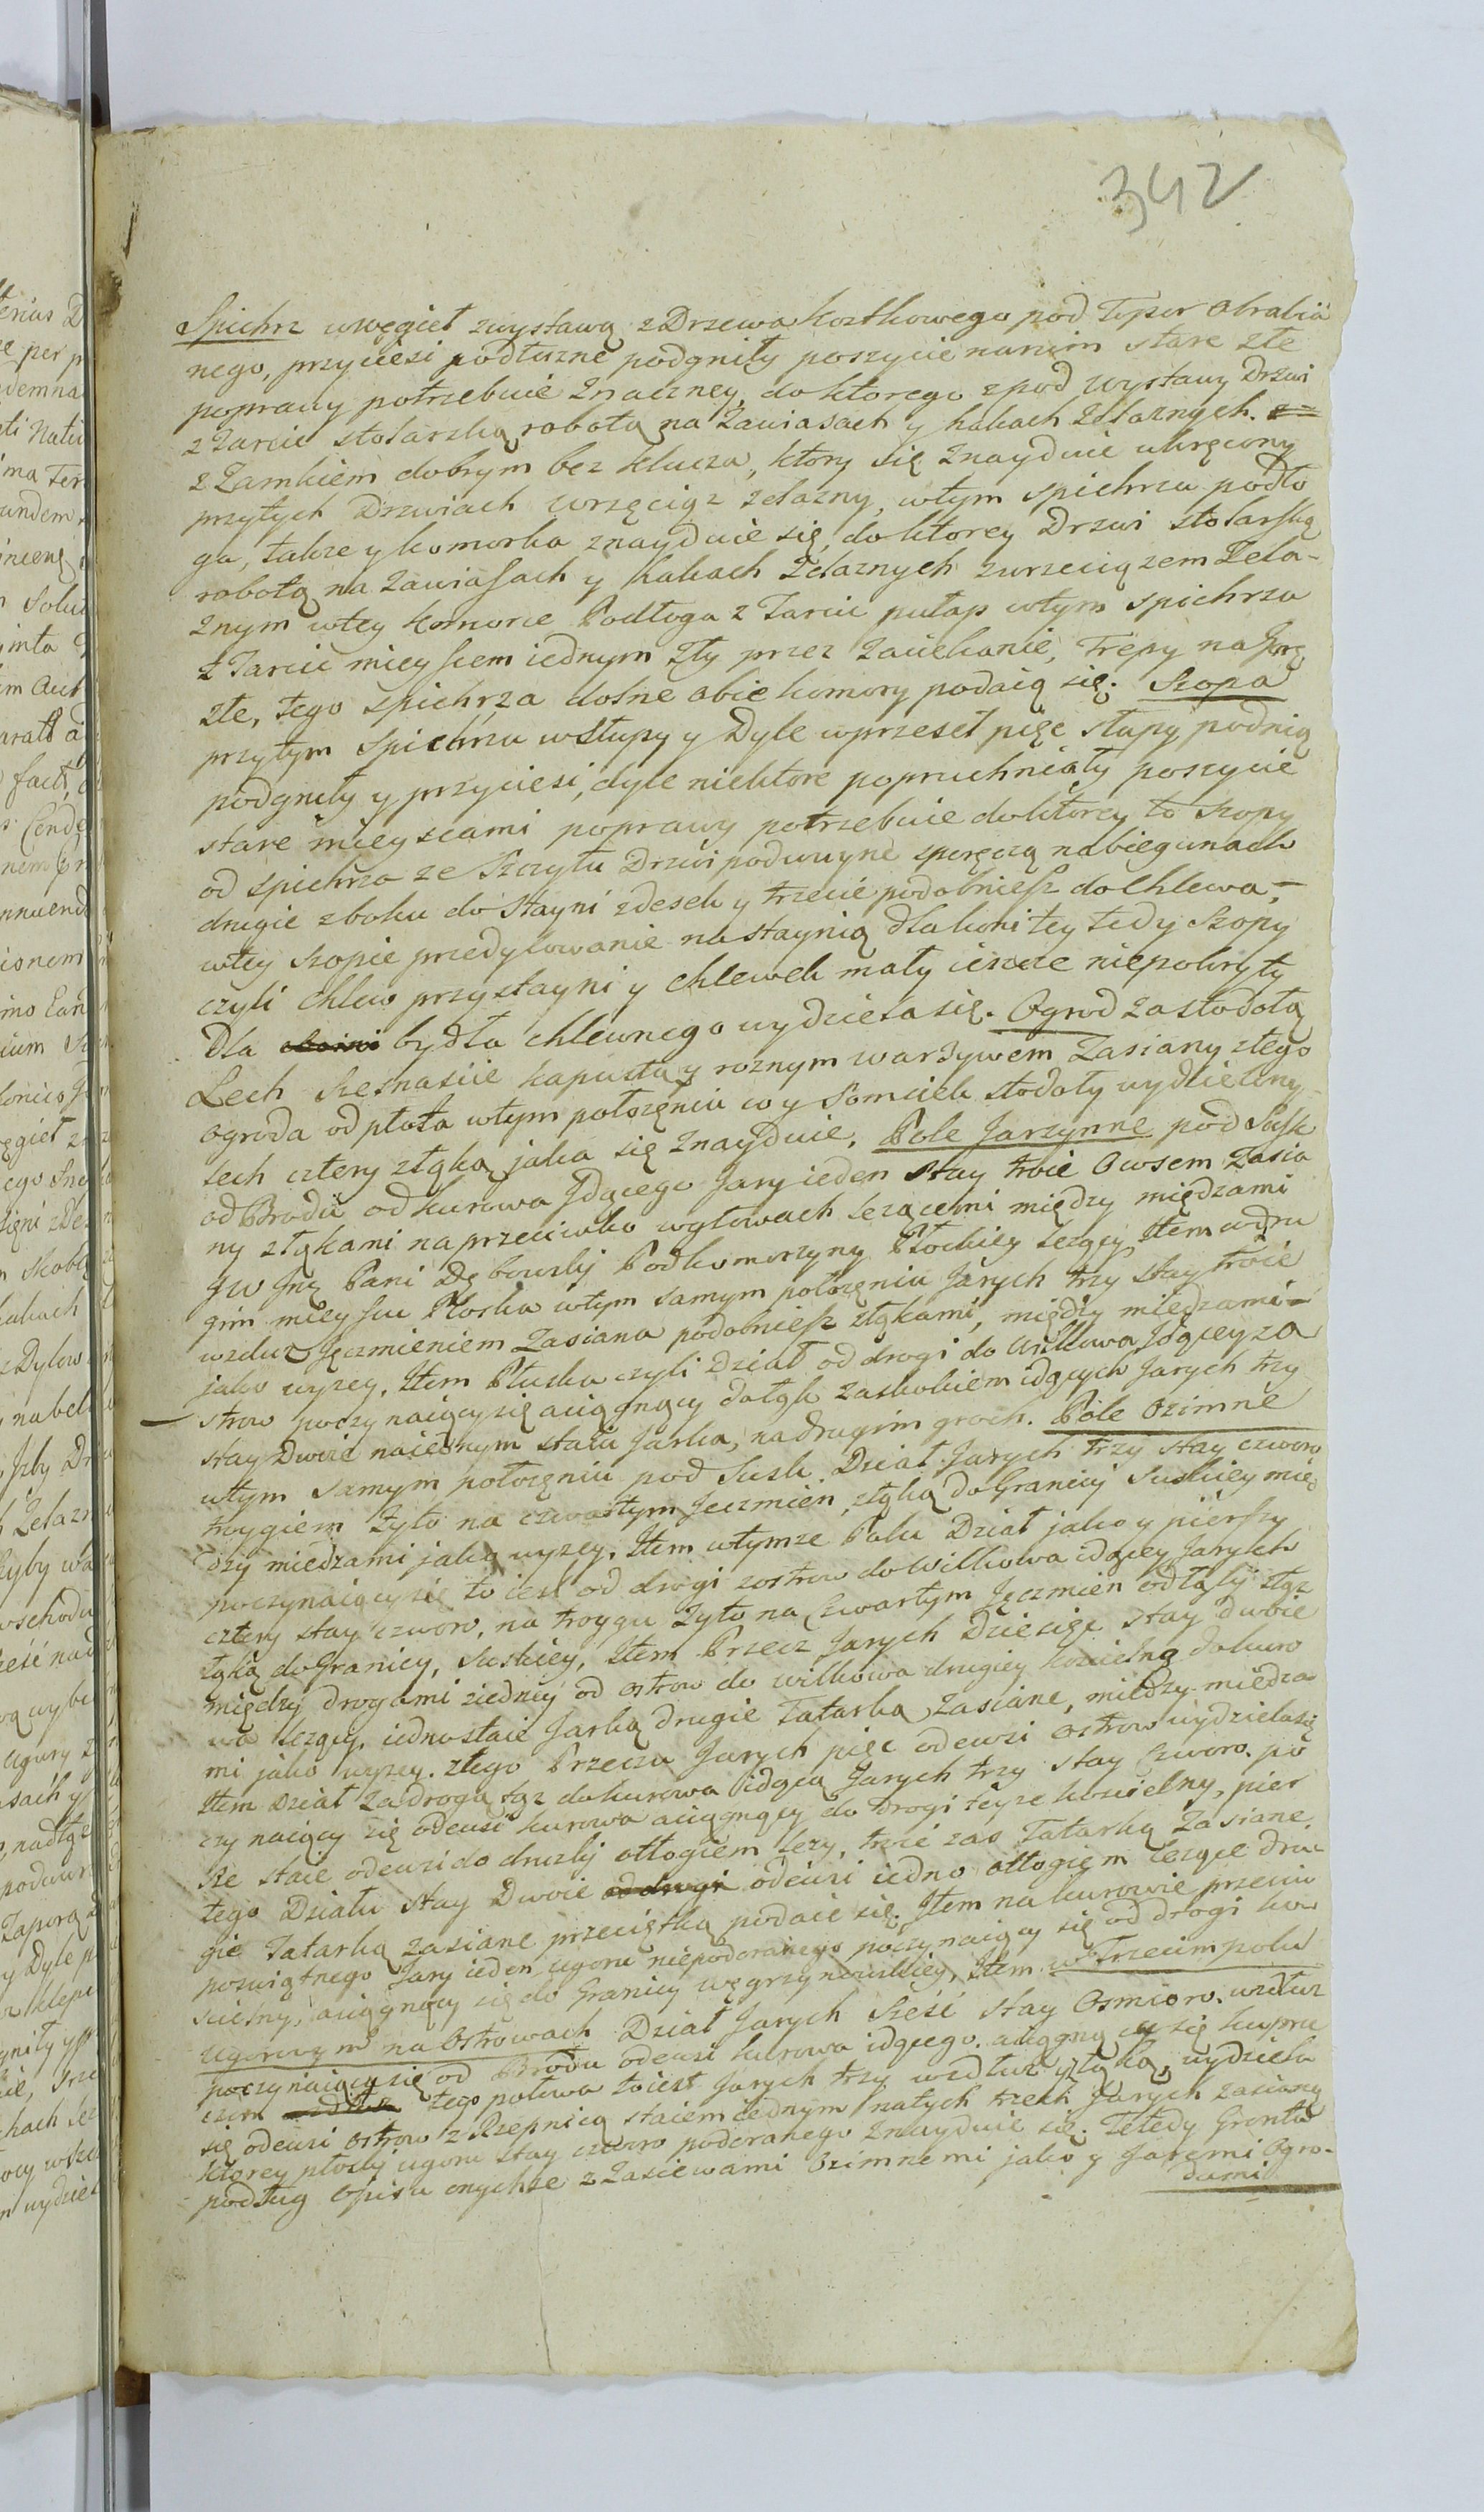 342
Spichrz wwęgieł zwystawą z Drzewa kostkowego pod Topor obrabia
nego, przyciesi podłużne podgniły poszycie nanim stare złe
poprawy potrzebuie znaczney, doktorego zpod wystawy Drzwi
z Tarcic stolarską robotą na Zawiasach y hakach Zelaznych.
z Zamkiem dobrym bez klucza, ktory się znayduie ukręcony
przytych Drzwiach wrzęciąz zelazny, wtym spichrzu podło
ga, także y komorka znayduie się, do ktorey Drzwi stolarską
robotą na zawiasach y hakach Zelaznych zwrzeciązem Żela-
znym wtey komorce Podłoga z Tarcic pułap wtym spichrzu
z Tarcic mieyscem iednym zły przez zaciekanie, Trepy na Gorę
złe, tego spichrza dolne obie komory podaią się. Szopa
przytym spichrzu wsłupy y Dyle wprzeseł pięc słupy podnią
podgniły y przyciesi, dyle niektore popruchniały poszycie
stare mieyscami poprawy potrzebuie doktorey to szopy
od spichrza ze Szczytu Drzwi podwuyne sporęczą nabiegunach
drugie zboku do Stayni zdesek y trzecie podobniesz do Chlewa,
wtey szopie przedylowanie na staynią dla koni tey tedy Szopy
czyli chlew przystayni y chlewek mały ieszcze niepokryty
Dla bydła chlewnego wydziela się. Ogrod zastodołą
Lech Szesnascie kapustą y roznym warzywem Zasiany ztego
ogroda od płota wtym położęniu co y Somsiek stodoły wydzielony
lech cztery złąką jaka się znayduie. Pole Jarzynne pod Susk
od Brodu od kurowa Jdącego Jary ieden stay troie Owsem Zasia
ny złąkami naprzeciwko wgłowach lezącemi między międzami
JW Jnę Pani Dębowsky Podkomorzyny Płockiey lezący Item wdru
gim mieyscu Ploska wtym samym położęniu Jarych trzy stay troie
wzdłuz Jęczmieniem Zasiana podobniesz złąkami, między miedzami
jako wyzey. Item Pluska czyli Dział od drogi do Wilkowa Jdącey za
strow poczynaiący się aciągnący dołąk zaskokiem idących Jarych trzy
stay Dwoie naiednym staiu Jarka, nadrugim groch. Pole Ozimne
wtym samym położęniu pod Susk. Dział Jarych trzy stay czworo
troygiem żyto na czwartym Jeczmien, złąką do Granicy Suskiey mię
dzy miedzami jako wyzey. Item wtymze Polu Dział jako y pierszy
poczynaiący się to iest od drogi zostrow do Wilkowa idącey Jarych
cztery stay czworo, na troygu żyto na Czwartym Jęczmien odtąsy złąz
łąką do Granicy, Suskiey, Item Przecz Jarych Dziesięc stay dwoie
między drogami ziedney od ostrow do wilkowa drugiey koscielną dokuro
wa lezący, iednostaie Jarką drugie Tatarką Zasiane, między miedza
mi jako wyzey. ztego Przeczu Jarych pięc odewsi ostrow wydziela się
Item Dział Zadrogą tąz dokurowa idącą Jarych trzy stay Czworo. po
czynaiący się odewsi kurowa aciągnący do drogi teyze koscielny, pier
sze staie odewsi do druzby ottogiem lezy, trzie zas Tatarką Zasiane.
tego Działu stay Dwoie odewsi iedno ottogiem lezące dru
gie Tatarką zasiane przeciętką podaie się. Item na kurowie przeciw
poswiątnego Jary ieden ugoru niepodoranego poczynaiący się od drogi ko
scielny, aciągnący się do Granicy węgrzynowskiey, Item w Trzecim polu
Ugorowym na Ostrowach Dział Jarych sześć stay Osmioro. wzdłuz
poczynaiący się od Brodu odewsi kurowa idącego. aciągnący się kuprze
czom tego połowa toiest Jarych trzy wzdłuz y złąką, wydziela
się odewsi Ostrow z Rzepnicą staiem iednym natych trzech Jarych zasianą
ktorey płosky ugoru stay czworo podoranego znayduie się. Te tedy Gronta
podług opisu onychze z Zasiewami Ozimnemi jako y Jaremi Ogro-
dami